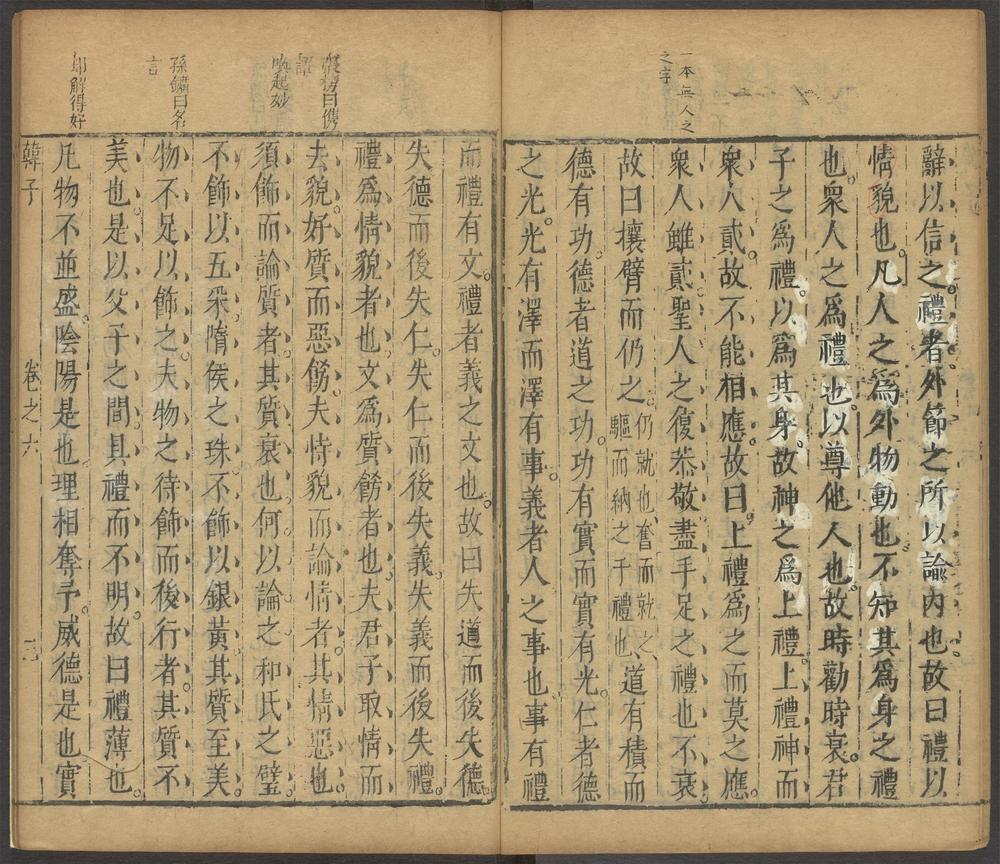 一本無人之
之字
辭以信之禮者外節之所以諭內也故曰禮以
情貌也凡人之為外物動也不知其為身之禮
也衆人之為禮也以尊他人也故時勸時衰君
子之為禮以為其身故神之為上禮上禮神而
衆人貳故不能相應故曰上禮為之而莫之應
衆人雖貳聖人之復恭敬盡手足之禮也不衰
故曰攘臂而仍之仍就也奮而就之驅而納之于禮也道有積而
德有功德者道之功功有實而實有光仁者德
之光光有澤而澤有事義者人之事也事有禮
而禮有文禮者義之文也故曰失道而後失德
失德而後失仁失仁而後失義失義而後失禮
禮為情貌者也文為質飾者也夫君子取情而
去貌好質而惡飾夫恃貌而論情者其情惡也
須飾而論質者其質衰也何以論之和氏之璧
不飾以五采隋侯之珠不飾以銀黃其質至美
物不足以飾之夫物之待飾而後行者其質不
美也是以父子之間其禮而不明故曰禮薄也
凡物不並盛陰陽是也理相奪予威德是也實
曰儁
語
喚起妙
孫鑛曰名
言
解得好
韓子
卷之六